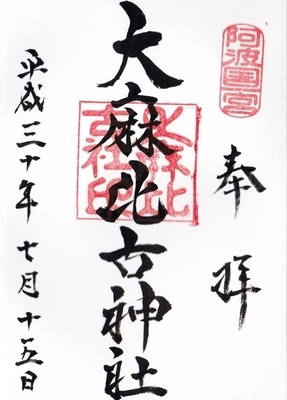 阿波国一宮
奉拝
大麻比古神社
大麻比古神社印
平成三十年七月十五日